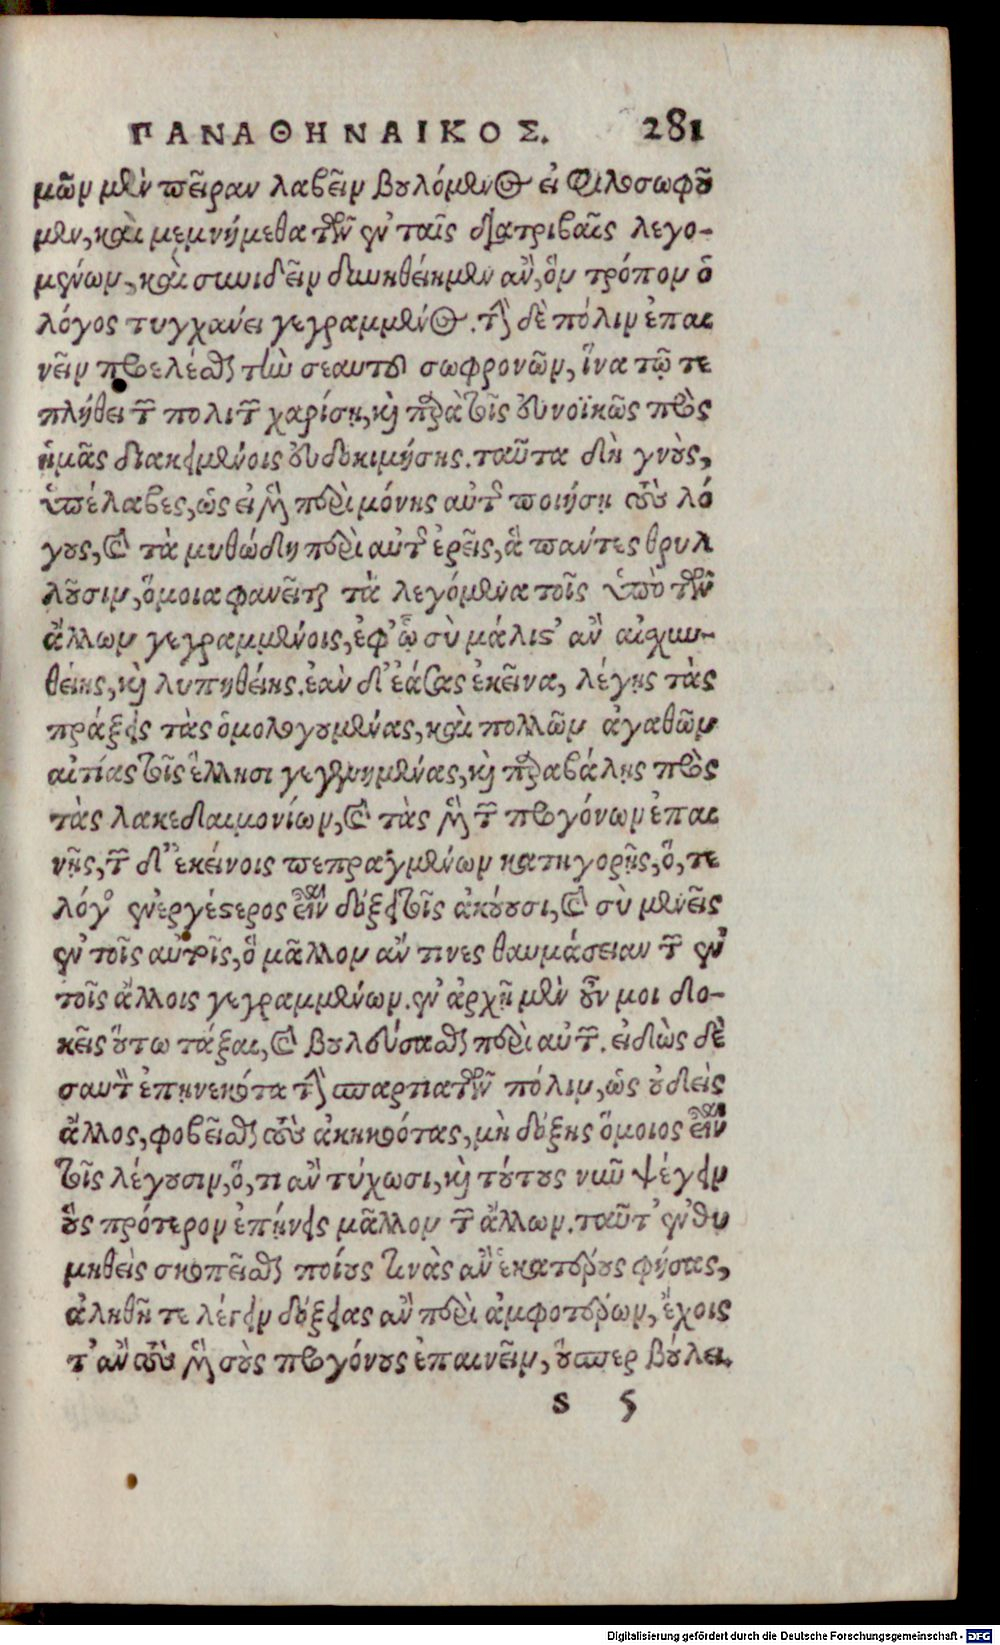 ΠΑΝΑΘΗΝΑΙΚΟΣ. 281
μῶν μὲν πεῖραν λαβεῖν βουλόμενος εἰ φιλοσοφοῦ
μεν, καὶ μεμνήμεθα τῶν ἐν ταῖς διατριβαῖς λεγο-
μένων, καὶ συνιδεῖν δυνηθείημεν ἂν, ὃν τρόπον ὁ
λόγος τυγχάνει γεγραμμένος. τὴν δὲ πόλιν ἐπαι
νεῖν προελέσθαι τὴν σεαυτοῦ σωφρονῶν, ἵνα τῷ τε
πλήθει τῶν πολιτῶν χαρίσῃ, καὶ παρὰ τοῖς εὐνοϊκῶς πρὸς
ἡμᾶς διακειμένοις εὐδοκιμήσῃς. ταῦτα δὴ γνοὺς,
ὑπέλαβες, ὡς εἰ μὲν περὶ μόνης αὐτῆς ποιήσῃ τοὺς λό
γους, καὶ τὰ μυθώδη περὶ αὐτῆς ἐρεῖς, ἃ πάντες θρυλ
λοῦσιν, ὅμοια φανεῖται τὰ λεγόμενα τοῖς ὑπὸ τῶν
ἄλλων γεγραμμένοις, ἐφ' ᾧ σὺ μάλιστ' ἂν αἰσχυν-
θείης, καὶ λυπηθείης. ἐὰν δ' ἐάσας ἐκεῖνα, λέγῃς τὰς
πράξεις τὰς ὁμολογουμένας, καὶ πολλῶν ἀγαθῶν
αἰτίας τοῖς ἕλλησι γεγενημένας, καὶ παραβάλῃς πρὸς
τὰς λακεδαιμονίων, καὶ τὰς μὲν τῶν προγόνων ἐπαι
νῇς, τῶν δ' ἐκείνοις πεπραγμένων κατηγορῇς, ὅ, τε
λόγος ἐνεργέστερος εἶναι δόξει τοῖς ἀκούουσι, καὶ σὺ μενεῖς
ἐν τοῖς αὐτοῖς, ὃ μᾶλλον ἄν τινες θαυμάσειαν τῶν ἐν
τοῖς ἄλλοις γεγραμμένων. ἐν ἀρχῇ μὲν οὖν μοι δο-
κεῖς οὕτω τάξαι, καὶ βουλεύσασθαι περὶ αὐτῶν. εἰδὼς δὲ
σαυτὸν ἐπῃνεκότα τὴν σπαρτιατῶν πόλιν, ὡς οὐδεὶς
ἄλλος, φοβεῖσθαι τοὺς ἀκηκοότας, μὴ δόξῃς ὅμοιος εἶναι
τοῖς λέγουσιν, ὅ, τι ἂν τύχωσι, καὶ τούτους νῦν ψέγειν
οὓς πρότερον ἐπῄνεις μᾶλλον τῶν ἄλλων. ταῦτ' ἐνθυ
μηθεὶς σκοπεῖσθαι ποίους τινὰς ἂν ἑκατέρους φήσας,
ἀληθῆ τε λέγειν δόξειας ἂν περὶ ἀμφοτέρων, ἔχοις
τ' ἂν τοὺς μὲν σοὺς προγόνους ἐπαινεῖν, οὕσπερ βούλει.
s 5
Digitalisierung gefördert durch die Deutsche Forschungsgemeinschaft - DFG